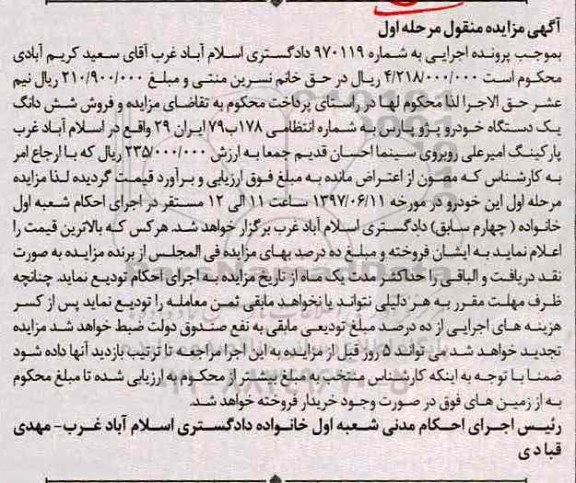 آگهی مزایده منقول مرحله اول
بموجب پرونده اجرایی به شماره ۹۷۰۱۱۹ دادگستری اسلام آباد غرب آقای سعید کریم آبادی
محکوم است ۴/۲۱۸/۰۰۰/۰۰۰ ریال در حق خانم نسرین منتی و مبلغ ۲۱۰/۹۰۰/۰۰۰ ریال نیم
عشر حق الاجرا لذا محکوم لها در راستای پرداخت محکوم به تقاضای مزایده و فروش شش دانگ
یک دستگاه خودرو پژو پارس به شماره انتظامی ۱۷۸ب۷۹ ایران ۲۹ واقع در اسلام آباد غرب
پارکینگ امیرعلی روبروی سینما احسان قدیم جمعا به ارزش ۲۳۵/۰۰۰/۰۰۰ ریال که با ارجاع امر
به کارشناس که مصون از اعتراض مانده به مبلغ فوق ارزیابی و برآورد قیمت گردیده لذا مزایده
مرحله اول این خودرو در مورخه ۱۳۹۷/۰۶/۱۱ ساعت ۱۱ الی ۱۲ مستقر در اجرای احکام شعبه اول
خانواده ( چهارم سابق) دادگستری اسلام آباد غرب برگزار خواهد شد. هرکس که بالاترین قیمت را
اعلام نماید به ایشان فروخته و مبلغ ده درصد بهای مزایده فی المجلس از برنده مزایده به صورت
نقد دریافت و الباقی را حداکثر مدت یک ماه از تاریخ مزایده به اجرای احکام تودیع نماید. چنانچه
ظرف مهلت مقرر به هر دلیلی نتواند یا نخواهد مابقی ثمن معامله را تودیع نماید پس از کسر
هزینه های اجرایی از ده درصد مبلغ تودیعی مابقی به نفع صندوق دولت ضبط خواهد شد مزایده
تجدید خواهد شد می تواند ۵ روز قبل از مزایده به این اجرا مراجعه تا ترتیب بازدید آنها داده شود
ضمنا با توجه به اینکه کارشناس منتخب به مبلغ بیشتر از محکوم به ارزیابی شده تا مبلغ محکوم
به از زمین های فوق در صورت وجود خریدار فروخته خواهد شد.
رئیس اجرای احکام مدنی شعبه اول خانواده دادگستری اسلام آباد غرب- مهدی
قبادی